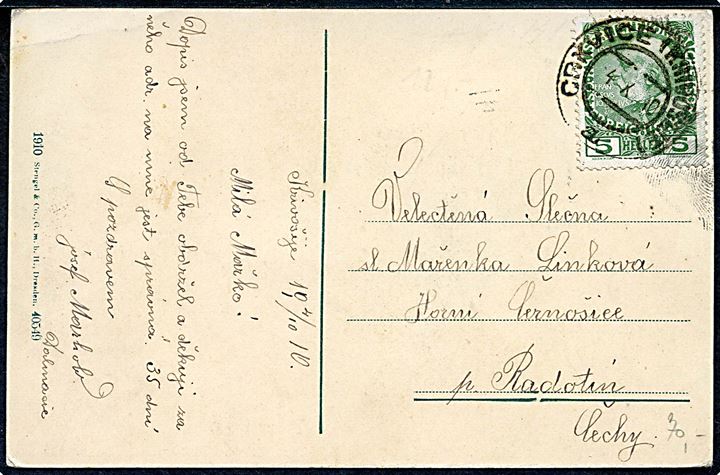 Krivošije 10 4/10 10.
Milá Mařko!
Dopis jsem od Tebe obdržel a děkuji za
neho adr. na mne jest správná. 35 dní
S pozdravem
Josef
Dalmacie
1910 Stengel & Co., G. m. b. H., Dresden. 40549
CRKVICE
5 HELLER 5
Velectěná Slečna
sl Mařenka Linková
Horní Černošice
p. Radotín
Čechy.
70,-